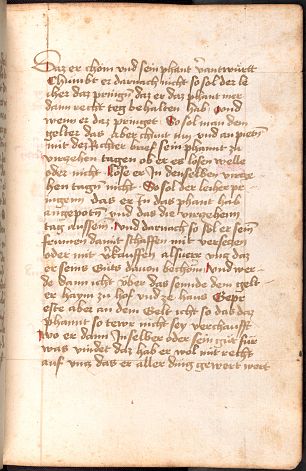 Daz er chom vnd sein phant verantwurtt
Chumbt er darnach nicht so sol der le
icher daz pringen daz er daz phant mer
dann recht teg behalten hab Vnd
wem er daz pringet So sol man dem
gelter das aber chunt tun vnd anpietn
mit des Richter brief sein phannt zu
virzehen tagen ob er es losen welle
oder nicht Lose er In denselben virze
hen tagn nicht So sol der leicher pr
ingenn das er im das phant hab
angepotn vnd das die virzehenn
tag aussein Vnd darnach so sol er sein
frumen damit schaffen mit verseczen
oder mit verkauffen alsuerr vncz daz
er seins Guts dauon bechom Vnd wer
de dann icht vber das sennde dem gelt
er haym zu hof vnd ze haus Gepr
este aber an dem Gelt icht so daz daz
phannt so tewr nicht sey verchaufft
wo er dann Inselber oder sein gut fur
was vindet daz hab er wol mit recht
auf vncz das er aller ding gewert wert